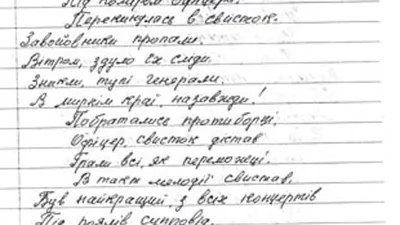 Під
Перекинулась в свисток.
Завойовники пропали,
Вітром, здуло їх сліди.
Зникли, тупі генерали.
В мирнім краї, назавжди!
Побратались противборці,
Офіцер, свисток дістав
Грали всі, як переможці.
В такт мелодії свистав.
Був найкращий, з всіх концертів
Під роялів супповід.